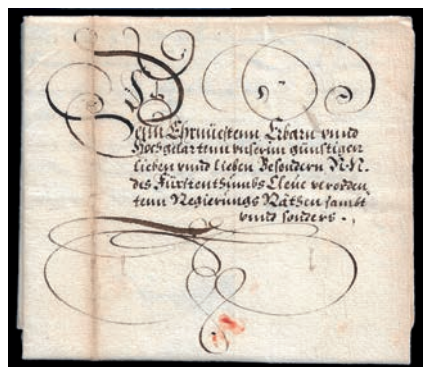 Denn Ehrnuestenn Erbarn vnnd
Hochgelartenn vnserim günstigen
lieben vnnd lieben Besondern N. N.
des Fürstenthumbs Cleue verorden,
tenn Regierungs Räthen sambt
vnnd sonders.,